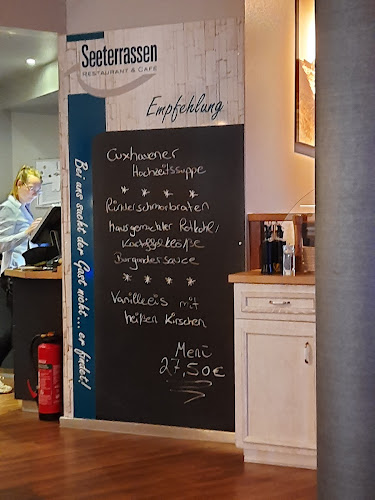 Seeterrassen
RESTAURANT & CAFÉ
Empfehlung
Cuxhavener
Hochzeitssuppe
* * * *
Rinderschmorbraten
Hausgemachter Rotkohl /
Kartoffelklöße
Burgundersauce
* * * *
Vanilleeis mit
heißen Kirschen
Menü
27,50€
Bei uns sucht der Gast nicht ... er findet!